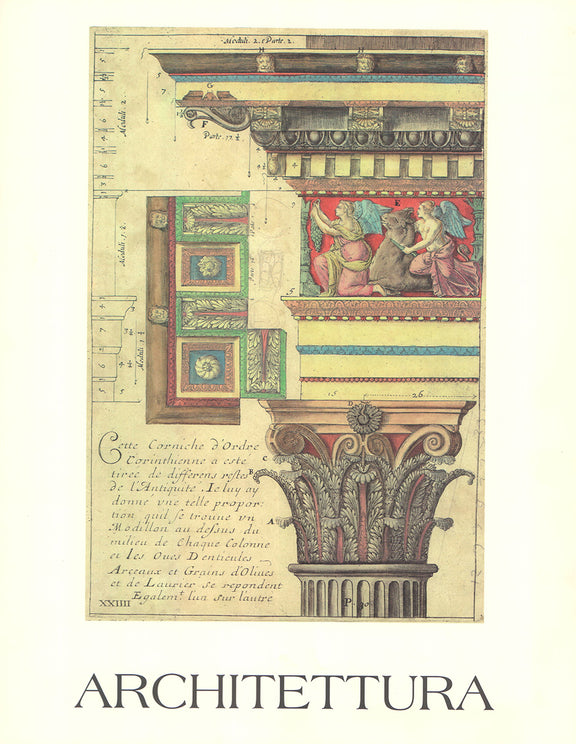 Moduli. 2. e Parte. 2.
H
H
5
5
7
G
F
Parte. 17. ½
Moduli. 2
E
Moduli. 1. ½
5
15
26
D
C
B
A
Cette Corniche d'Ordre
Corinthienne a esté
tirée de differens restes
de l'Antiquité. Je luy ay
donné vne telle propor:
tion quil se trouve vn
Modillon au dessus du
milieu de Chaque Colonne
et les Oues Denticules
Arceaux et Grains d'Oliues
et de Laurier se repondent
Egalemt. l'un sur l'autre
XXIIII
P. 30
ARCHITETTURA